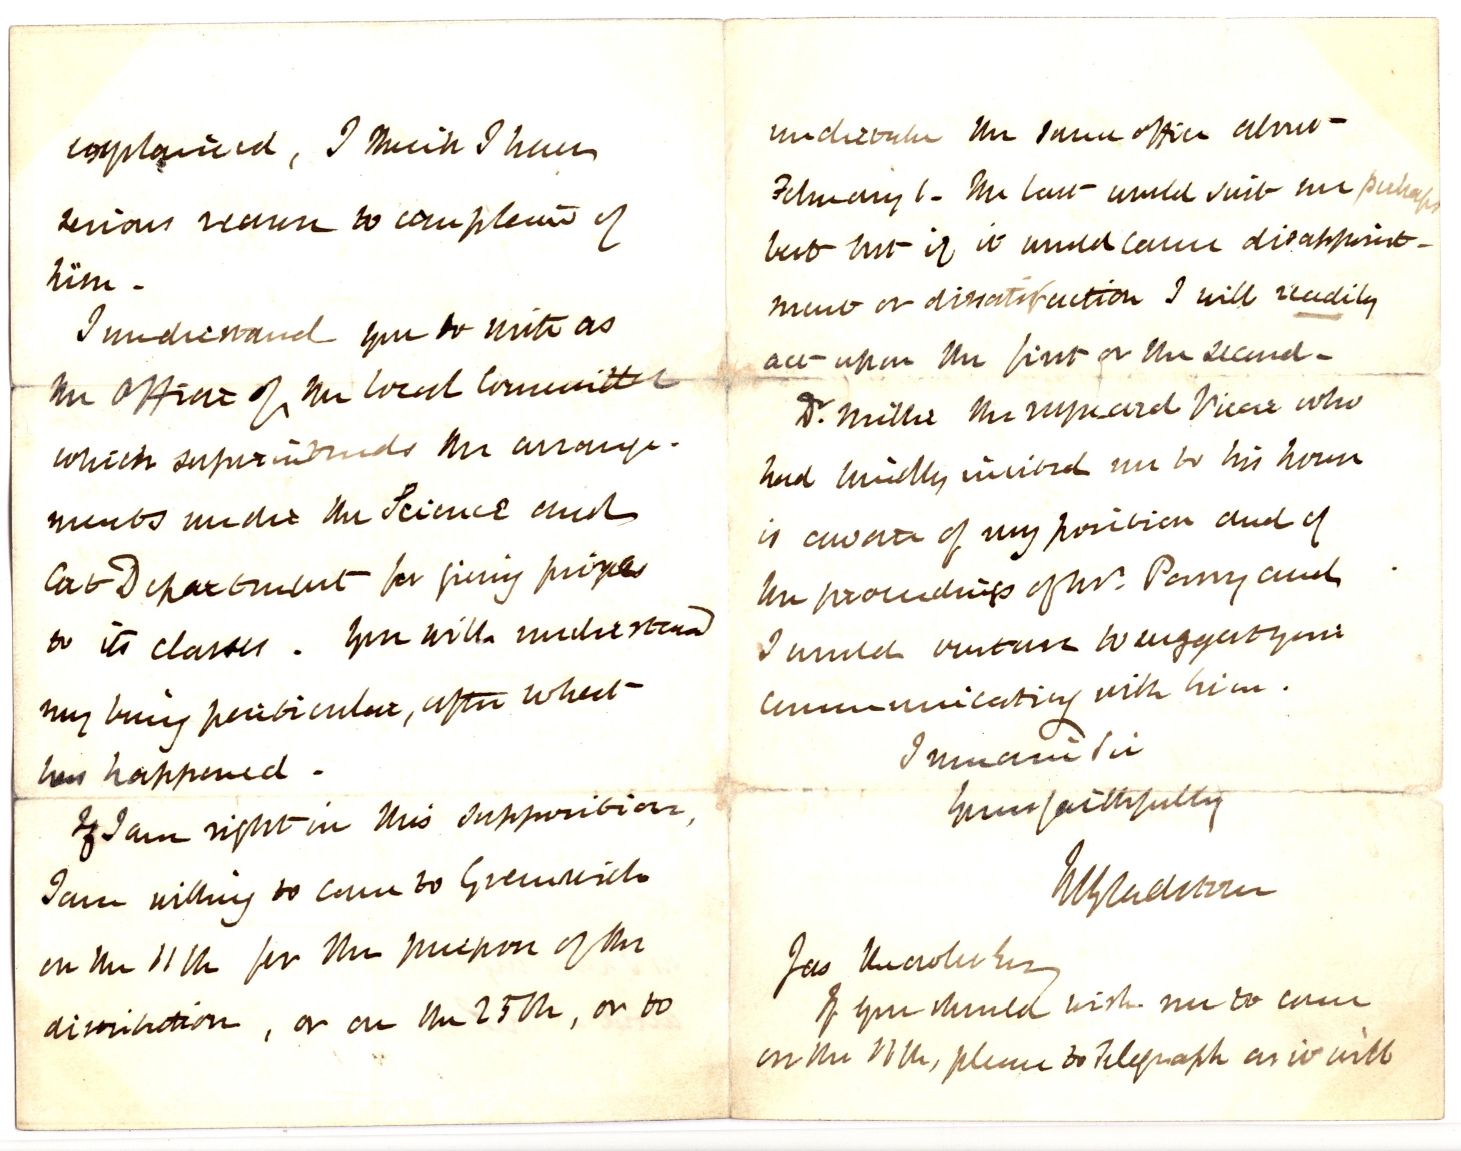 explained, I think I have
serious reason to complain of
him -
I understand you to write as
the Officer of the Local Committee
which superintends the arrange-
ments under the Science and
Art Department for giving prizes
to its classes. You will understand
my being particular, after what
has happened -
If I am right in this supposition,
I am willing to come to Greenwich
on the 11th for the purpose of the
distribution, or on the 25th, or to
undertake the same office about
February 6 - The last would suit me perhaps
best but if it would cause disappoint-
ment or dissatisfaction I will readily
act upon the first or the second -
Dr. Miller the respected Vicar who
had kindly invited me to his house
is aware of my position and of
the proceedings of Mr. Parry and
I would venture to suggest your
communicating with him.
I remain Sir
Your faithfully
WEGladstone
Jas Esq
If you should wish me to come
on the 11th, please to Telegraph as it will